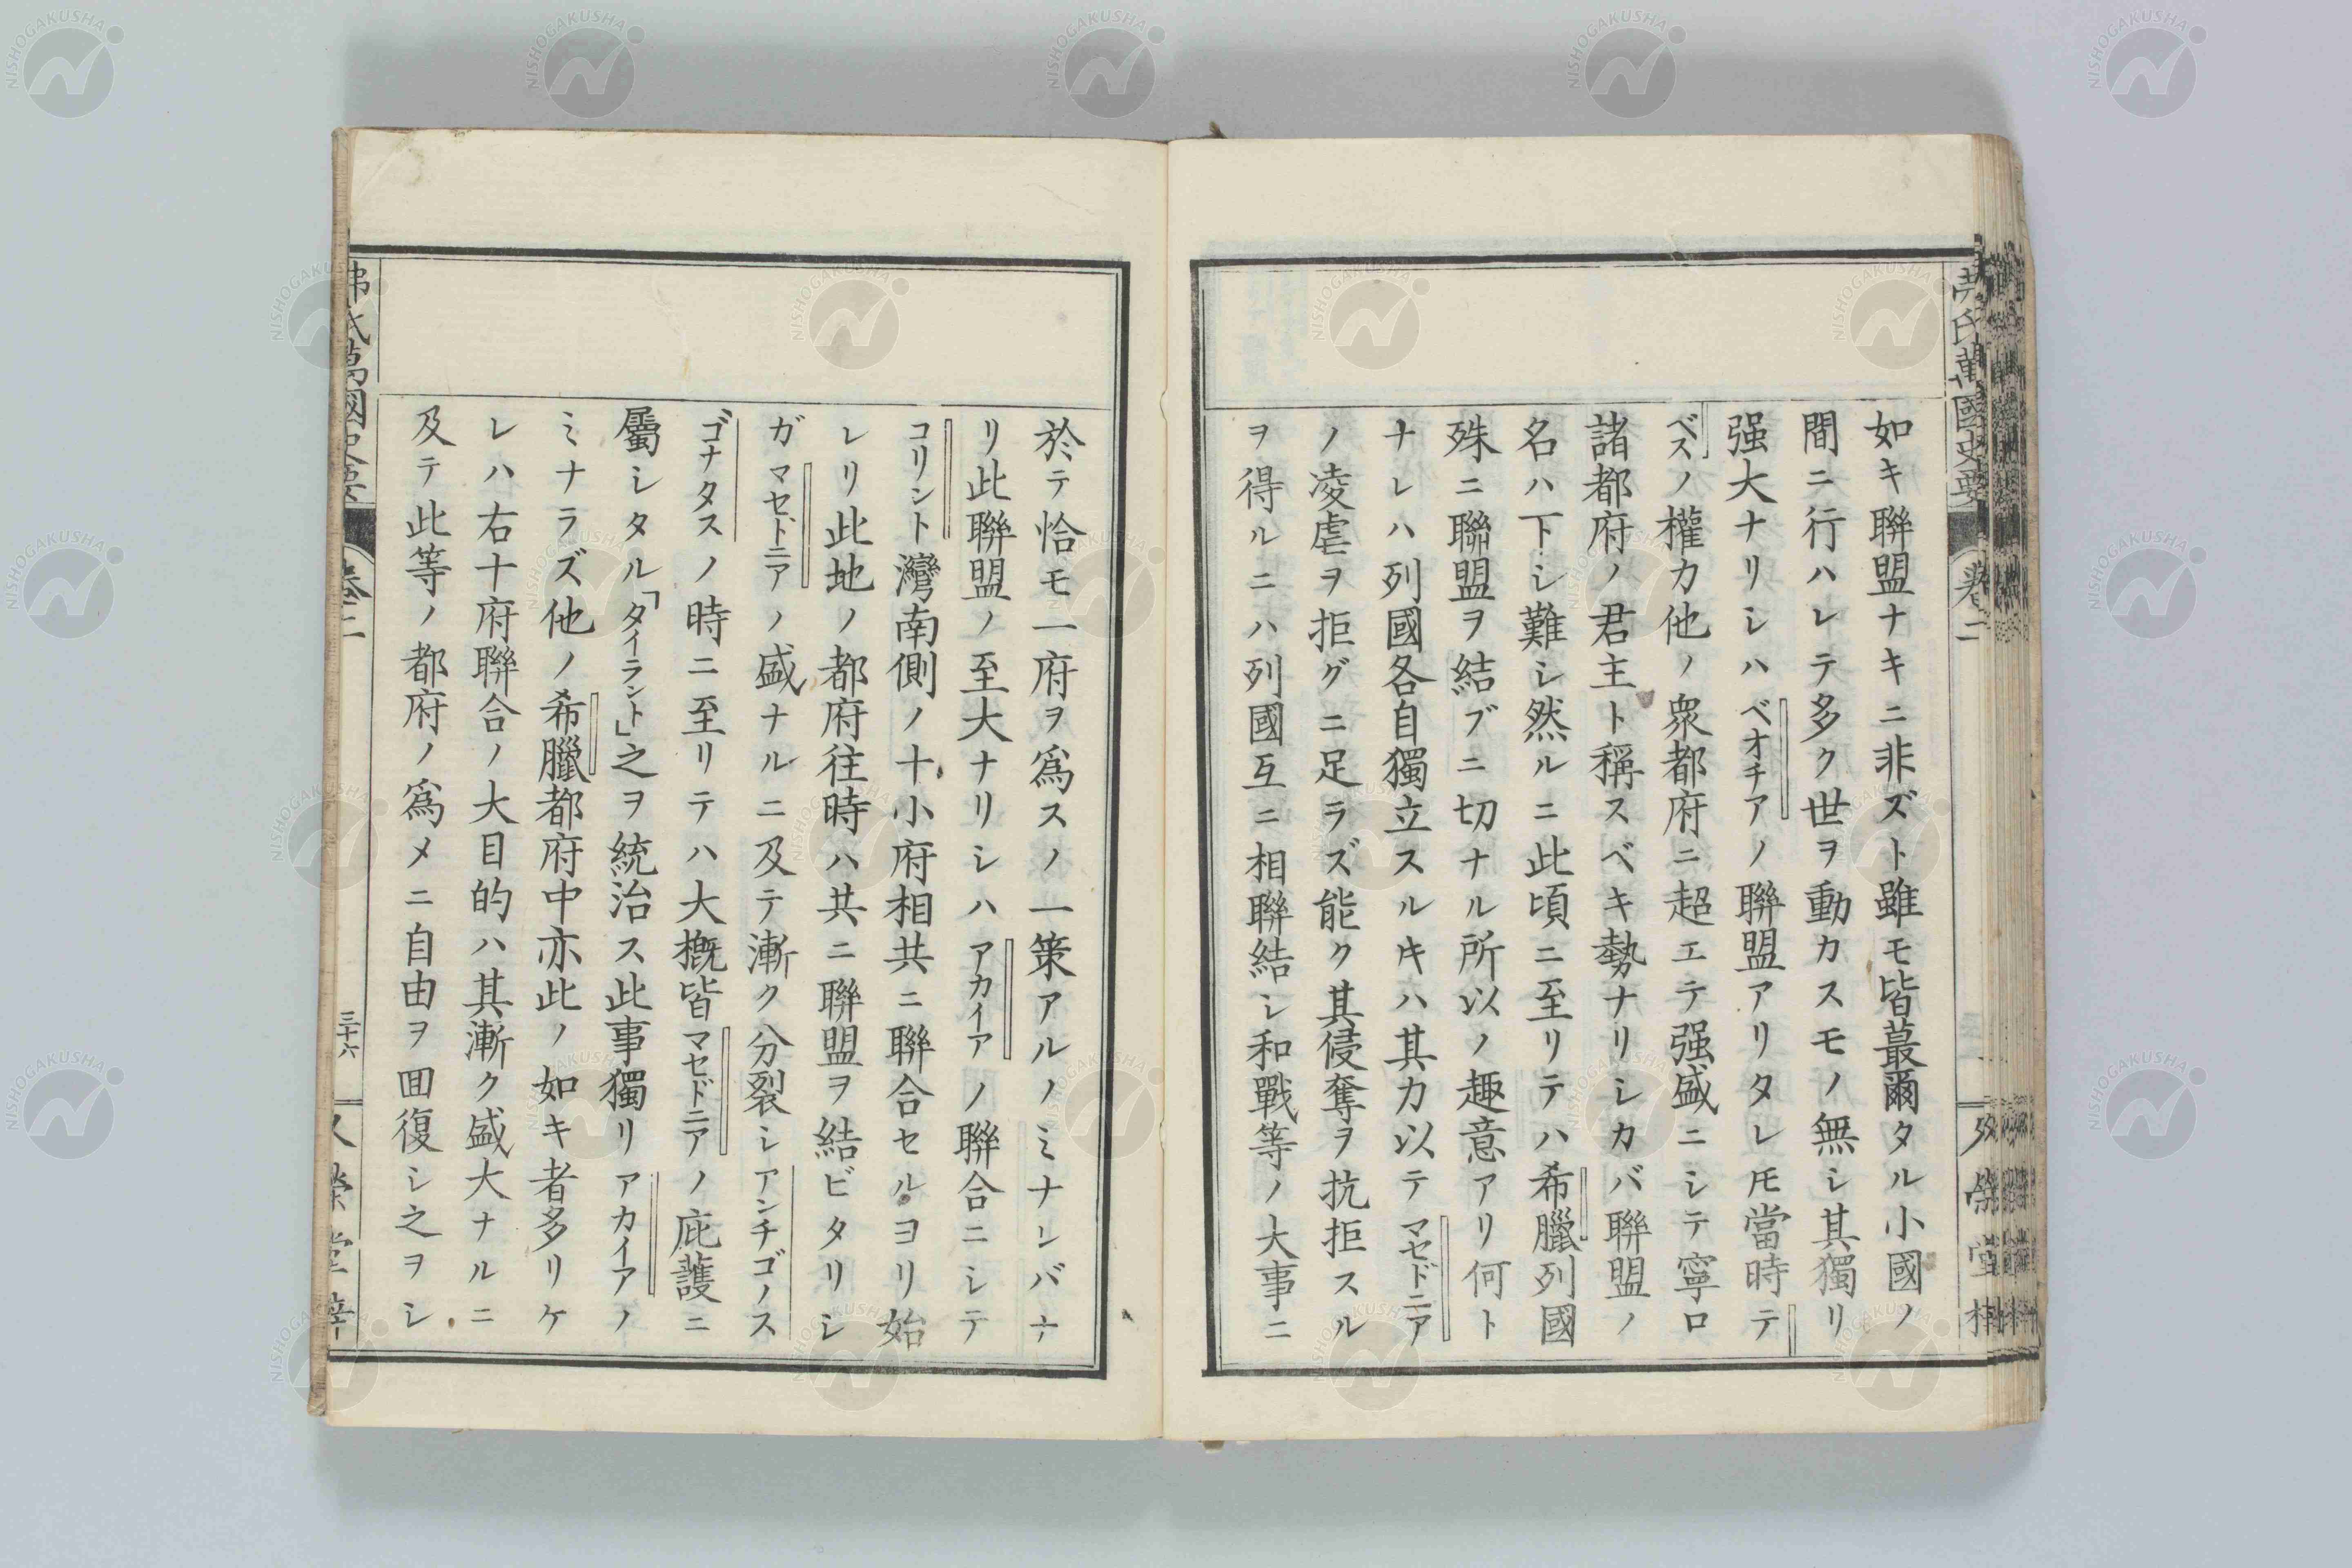 如キ聯盟ナキニ非ズト雖モ皆蕞爾タル小國ノ
間ニ行ハレテ多ク世ヲ動カスモノ無シ其獨リ
强大ナリシハベオチアノ聯盟アリタレ𪜈當時テ
ベスノ權力他ノ衆都府ニ超エテ强盛ニシテ寧ロ
諸都府ノ君主ト稱スベキ勢ナリシカバ聯盟ノ
名ハ下シ難シ然ルニ此頃ニ至リテハ希臘列國
殊ニ聯盟ヲ結ブニ切ナル所以ノ趣意アリ何ト
ナレハ列國各自獨立スルキハ其力以テマセドニア
ノ凌虐ヲ拒グニ足ラズ能ク其侵奪ヲ抗拒スル
ヲ得ルニハ列國互ニ相聯結シ和戰等ノ大事ニ
於テ恰モ一府ヲ爲スノ一策アルノミナレバナ
リ此聯盟ノ至大ナリシハアカイアノ聯合ニシテ
コリント灣南側ノ十小府相共ニ聯合セルヨリ始
レリ此地ノ都府往時ハ共ニ聯盟ヲ結ビタリシ
ガマセドニアノ盛ナルニ及テ漸ク分裂シアンチゴノス
ゴナタスノ時ニ至リテハ大概皆マセドニアノ庇護ニ
屬シタル「タイラント」之ヲ統治ス此事獨リアカイアノ
ミナラズ他ノ希臘都府中亦此ノ如キ者多リケ
レハ右十府聯合ノ大目的ハ其漸ク盛大ナルニ
及テ此等ノ都府ノ爲メニ自由ヲ囬復シ之ヲシ
氏萬國史要
卷二
三十六
NISHOGAKUSHA